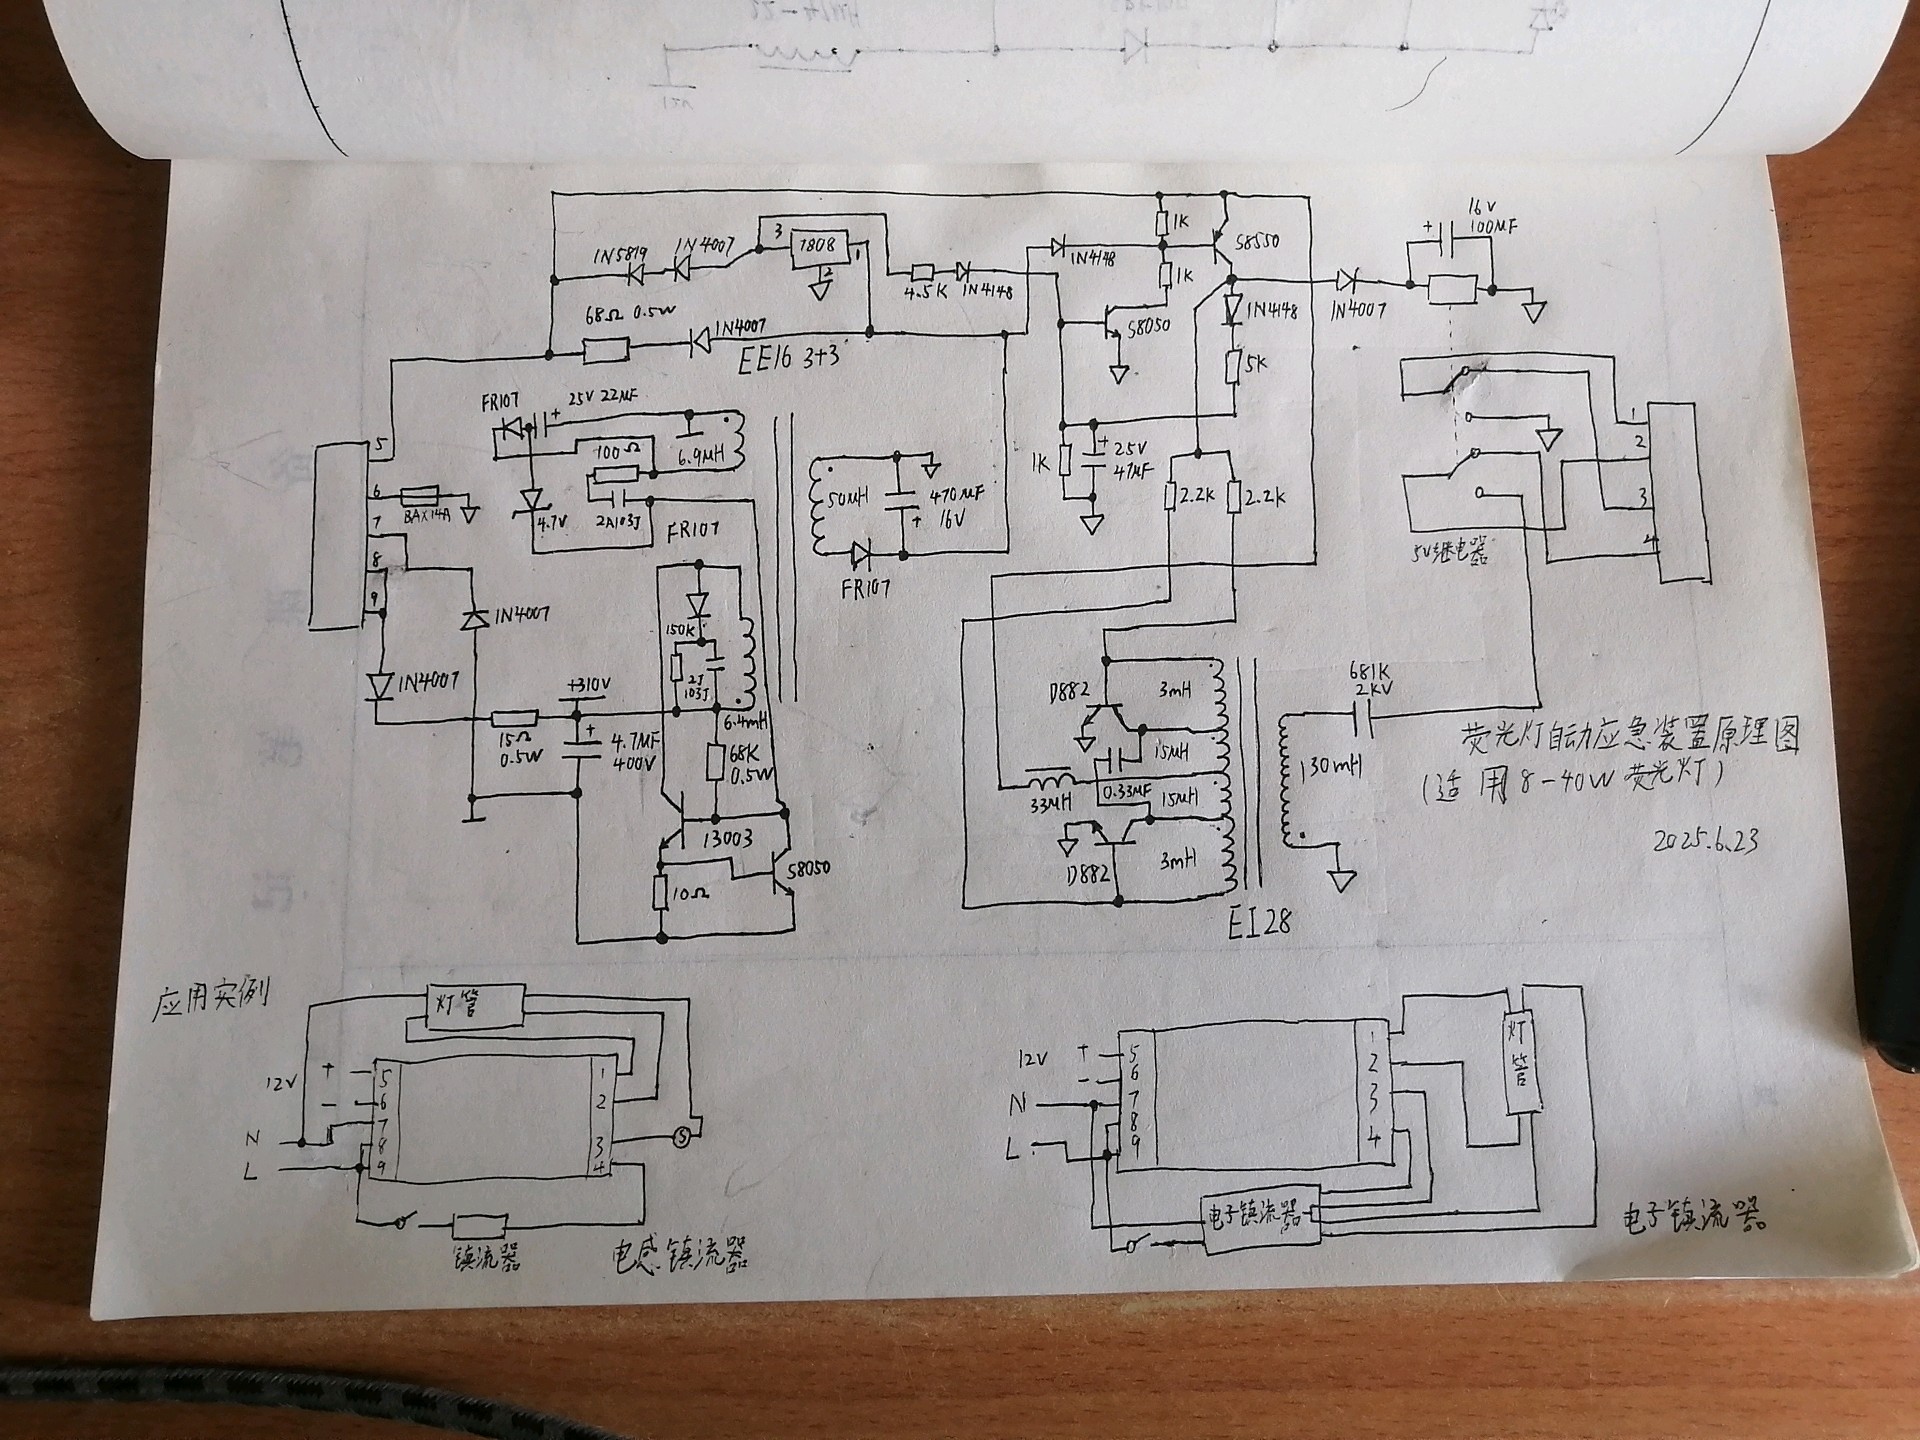 16V
100MF
1K
S8550
1N5819
1N4007
3
7808
1
2
1N4148
1K
4.5K
1N4148
1N4148
1N4007
68Ω 0.5W
1N4007
S8050
EE16 3+3
5K
FR107
25V 22MF
+
100Ω
6.9MH
5
6
8AX14A
7
8
9
4.7V
2A103J
FR107
50MH
470MF
16V
+
FR107
1K
+
25V
47MF
2.2K
2.2K
1
2
3
4
5V继电器
1N4007
1N4007
150K
2J
103J
6.4mH
+310V
15Ω
0.5W
+
4.7MF
400V
68K
0.5W
13003
S8050
10Ω
D882
3mH
15MH
0.33MF
33MH
15MH
D882
3mH
EI28
130mH
681K
2KV
荧光灯自动应急装置原理图
(适用8-40W荧光灯)
2025.6.23
应用实例
灯管
12V
+
-
N
L
5
6
7
8
9
1
2
3
4
S
镇流器
电感镇流器
12V
+
-
N
L
5
6
7
8
9
1
2
3
4
灯管
电子镇流器
电子镇流器